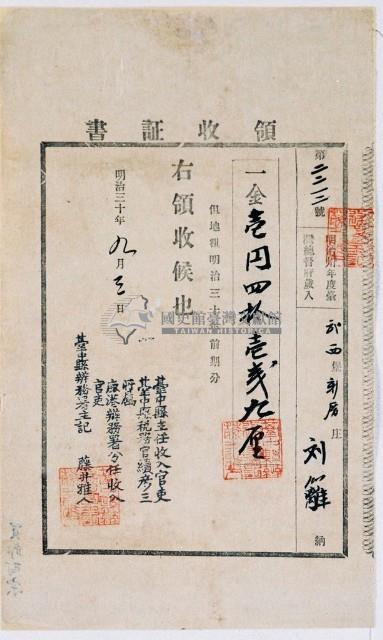 領收証書
第二二三號
明治卅年度臺
灣總督府歲入
武西堡新厝庄
刘籬
納
一金壱円四拾壱戔九厘
但地租明治三十年前期分
右領收候也
明治三十年九月三日
臺中縣主任收入官吏
臺中縣稅務官續彥三
鹿港辦務署分任收入
官吏
臺中縣辦務署主記
藤井雅人
國史館臺灣文獻館
TAIWAN HISTORICA